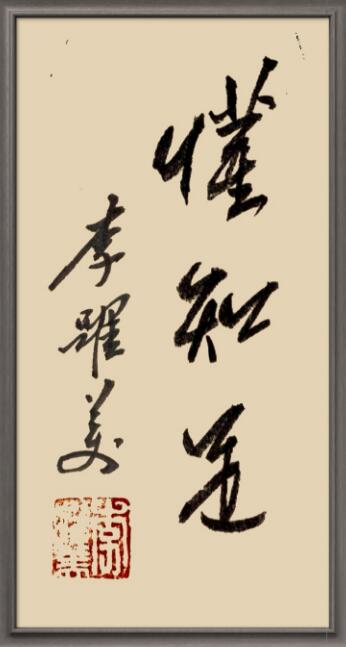 懂知足
李躍美